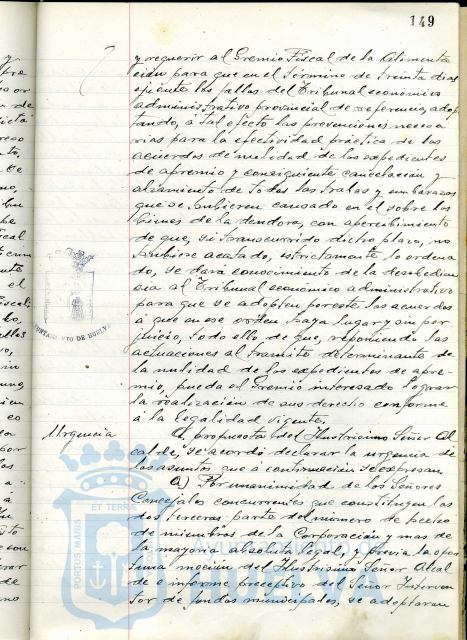 149
y requerir al Gremio Fiscal de la Alimenta
ción para que en el término de treinta dias
ejecute los fallos del Tribunal económico
administrativo provincial de referencia, adop
tando, a tal efecto las prevenciones necesa
rias para la efectividad práctica de los
acuerdos de nulidad de los expedientes
de apremio y consiguiente cancelación y
alzamiento de todas las trabas y embarazos
que se hubieren causado en el sobre los
bienes de la deudora, con apercibimiento
de que, si transcurrido dicho plazo, no
hubiese acatado, estrictamente lo ordena
do, se dará conocimiento de la desobedien
cia al Tribunal económico administrativo
para que se adopten por este los acuerdos
á que en ese orden haya lugar y sin per
juicio, todo ello de que, reponiendo las
actuaciones al tramite determinante de
la nulidad de los expedientes de apre
mio, pueda el Gremio interesado lograr
la realización de sus derecho conforme
á la legalidad vigente.
Urgencia
A propuesta del Ilustrisimo Señor Al
calde, se acordó declarar la urgencia de
los asuntos que á continuación se expresan.
a) Por unanimidad de los Señores
Concejales concurrentes que constituyen las
dos terceras parte del número de hecho
de miembros de la Corporación y mas de
la mayoria absoluta legal, y previa la opor
tuna moción del Ilustrisimo Señor Alcal
de e informe preceptivo del Señor Interven
tor de fondos municipales, se adoptaron
AYUNTAMIENTO DE HUELVA
PORTUS MARIS
ET TERRAE
AYUNTAMIENTO DE
HUELVA